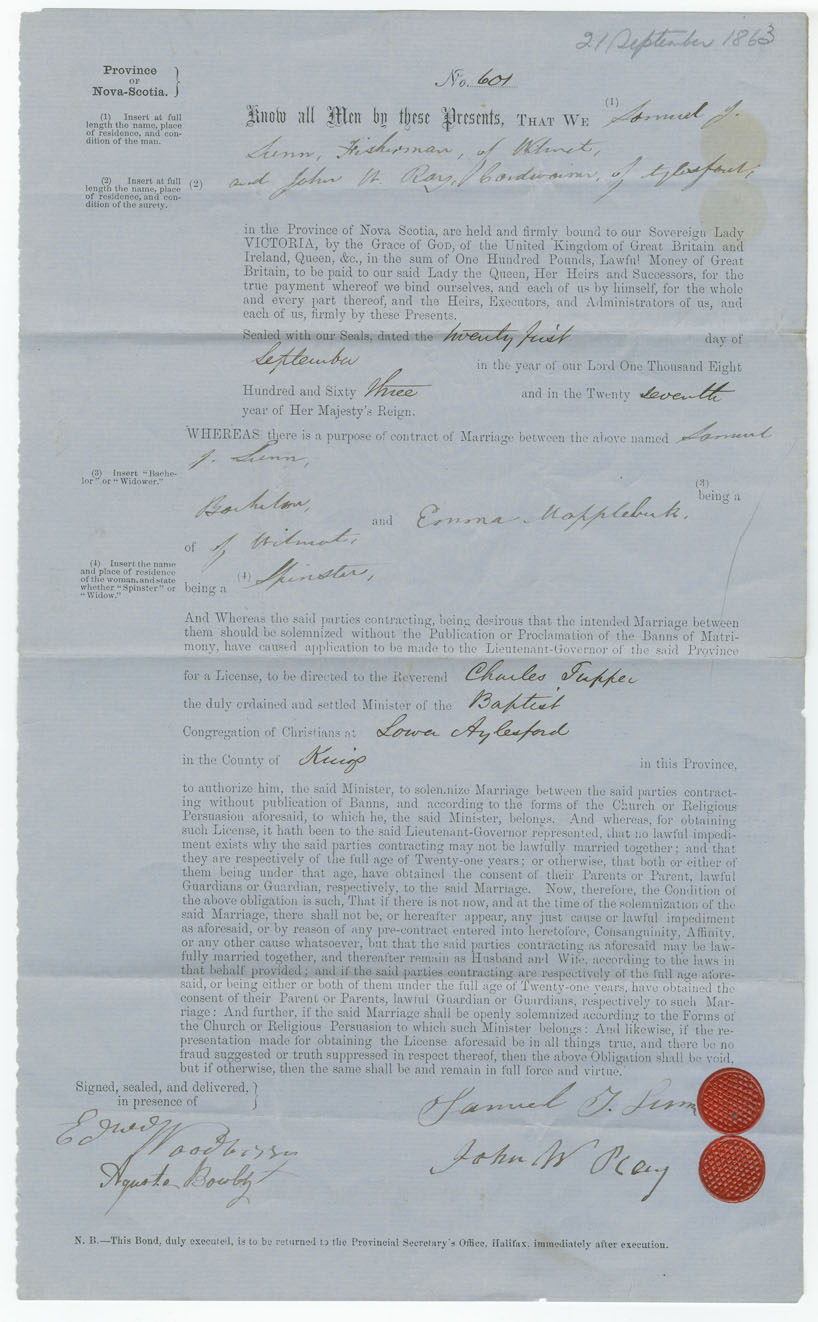 21 September 1863
Province
OF
Nova-Scotia.
No. 601
(1) Insert at full
length the name, place
of residence, and con-
dition of the man.
Know all Men by these Presents, THAT WE (1) Samuel J.
Fisherman, of Wilmot,
(2) Insert at full
length the name, place
of residence, and con-
dition of the surety.
(2) and John W. Ray, Cordwainer, of Aylesford,
in the Province of Nova Scotia, are held and firmly bound to our Sovereign Lady
VICTORIA, by the Grace of GOD, of the United Kingdom of Great Britain and
Ireland, Queen, &c., in the sum of One Hundred Pounds, Lawful Money of Great
Britain, to be paid to our said Lady the Queen, Her Heirs and Successors, for the
true payment whereof we bind ourselves, and each of us by himself, for the whole
and every part thereof, and the Heirs, Executors, and Administrators of us, and
each of us, firmly by these Presents.
Sealed with our Seals, dated the twenty first day of
September in the year of our Lord One Thousand Eight
Hundred and Sixty three and in the Twenty seventh
year of Her Majesty's Reign.
WHEREAS there is a purpose of contract of Marriage between the above named Samuel
J.
(3) Insert "Bache-
lor" or "Widower."
(3)
being a
Bachelor, and Emma
of of Wilmot,
(4) Insert the name
and place of residence
of the woman, and state
whether "Spinster" or
"Widow."
being a (4) Spinster,
And Whereas the said parties contracting, being desirous that the intended Marriage between
them should be solemnized without the Publication or Proclamation of the Banns of Matri-
mony, have caused application to be made to the Lieutenant-Governor of the said Province
for a License, to be directed to the Reverend Charles Tupper
the duly ordained and settled Minister of the Baptist
Congregation of Christians at Lower Aylesford
in the County of Kings in this Province,
to authorize him, the said Minister, to solemnize Marriage between the said parties contract-
ing without publication of Banns, and according to the forms of the Church or Religious
Persuasion aforesaid, to which he, the said Minister, belongs. And whereas, for obtaining
such License, it hath been to the said Lieutenant-Governor represented, that no lawful impedi-
ment exists why the said parties contracting may not be lawfully married together; and that
they are respectively of the full age of Twenty-one years; or otherwise, that both or either of
them being under that age, have obtained the consent of their Parents or Parent, lawful
Guardians or Guardian, respectively, to the said Marriage. Now, therefore, the Condition of
the above obligation is such, That if there is not now, and at the time of the solemnization of the
said Marriage, there shall not be, or hereafter appear, any just cause or lawful impediment
as aforesaid, or by reason of any pre-contract entered into heretofore, Consanguinity, Affinity,
or any other cause whatsoever, but that the said parties contracting as aforesaid may be law-
fully married together, and thereafter remain as Husband and Wife, according to the laws in
that behalf provided; and if the said parties contracting are respectively of the full age afore-
said, or being either or both of them under the full age of Twenty-one years, have obtained the
consent of their Parent or Parents, lawful Guardian or Guardians, respectively to such Mar-
riage: And further, if the said Marriage shall be openly solemnized according to the Forms of
the Church or Religious Persuasion to which such Minister belongs: And likewise, if the re-
presentation made for obtaining the License aforesaid be in all things true, and there be no
fraud suggested or truth suppressed in respect thereof, then the above Obligation shall be void,
but if otherwise, then the same shall be and remain in full force and virtue.
Signed, sealed, and delivered,
in presence of
Samuel J.
John W Ray
N. B.—This Bond, duly executed, is to be returned to the Provincial Secretary's Office, Halifax, immediately after execution.